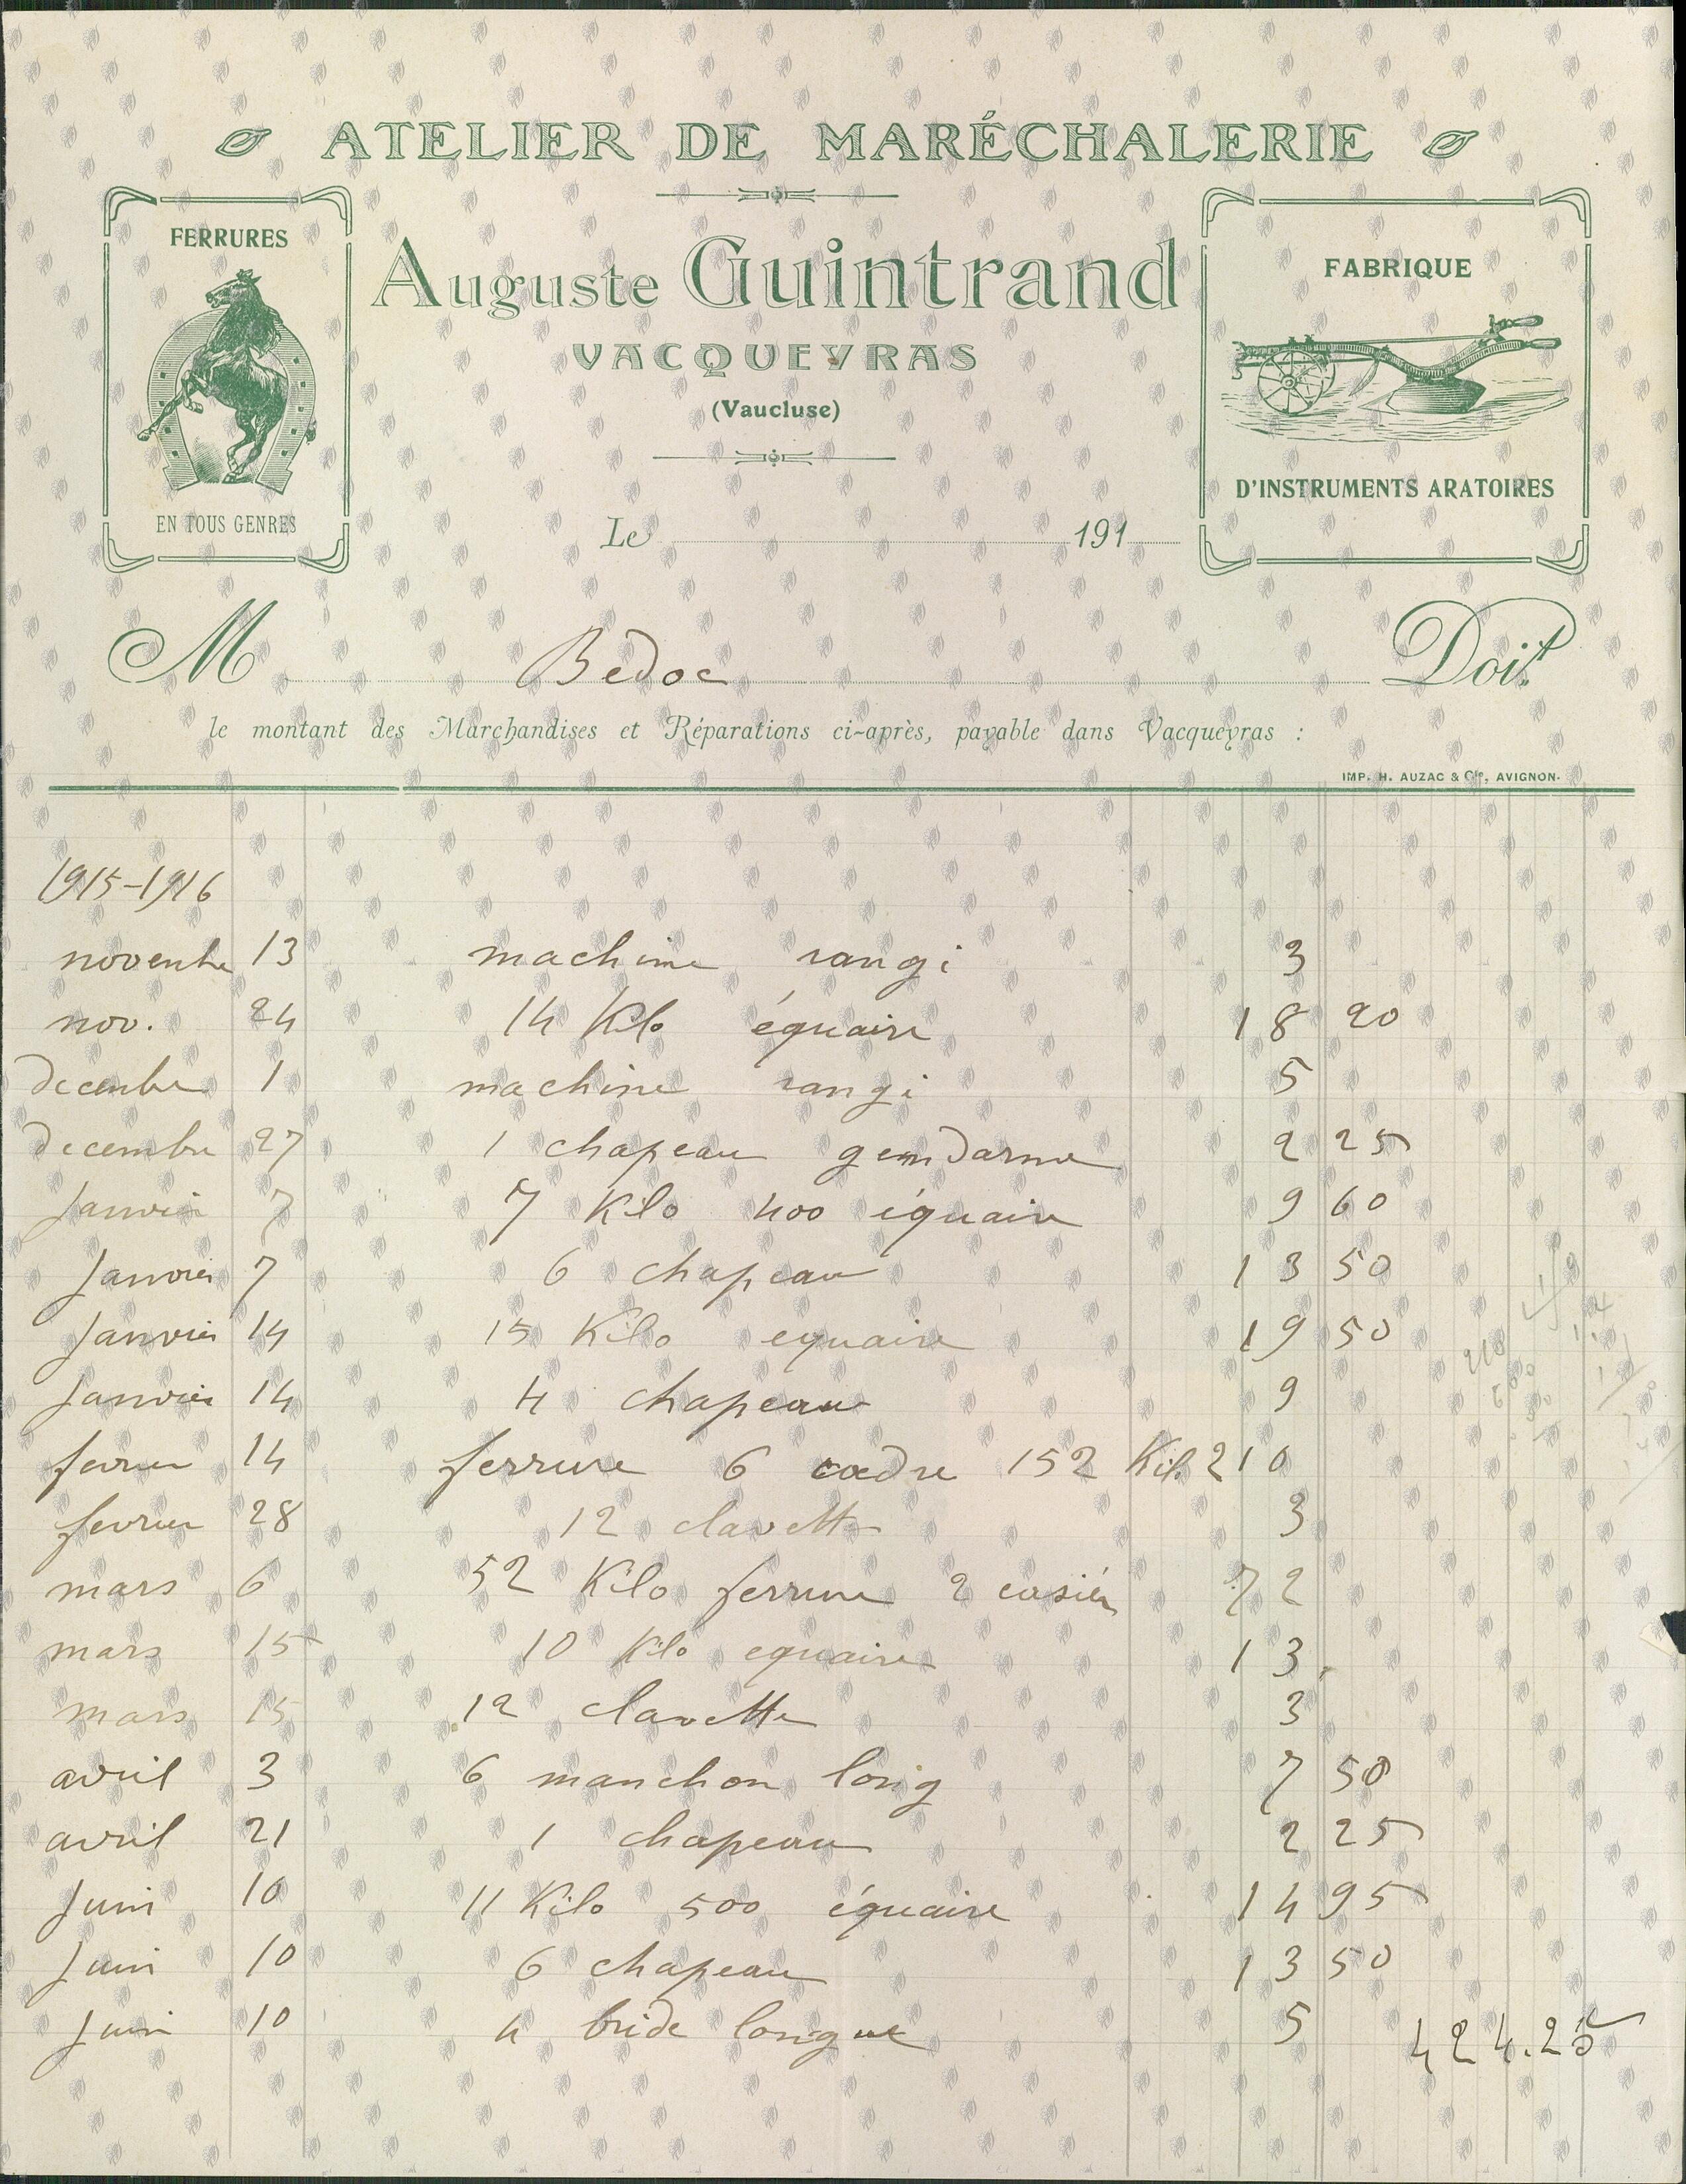 ATELIER DE MARÉCHALERIE
FERRURES
EN TOUS GENRES
Auguste Guintrand
VACQUEYRAS
(Vaucluse)
FABRIQUE
D'INSTRUMENTS ARATOIRES
Le 191
M Bedoc Doit
le montant des Marchandises et Réparations ci-après, payable dans Vacqueyras :
IMP. H. AUZAC & Cie, AVIGNON.
1915-1916
novembre 13 machine rangi 3
nov. 24 14 Kilo équaire 18 20
decembre 1 machine rangi 5
decembre 27 1 chapeau gendarme 2 25
Janvier 7 7 Kilo 400 équaire 9 60
Janvier 7 6 chapeau 13 50
Janvier 14 15 Kilo equaire 19 50
Janvier 14 4 chapeau 9
fevrier 14 ferrure 6 cadre 152 Kil. 210
fevrier 28 12 clavette 3
mars 6 52 Kilo ferrure 2 casiér 72
mars 15 10 Kilo equaire 13
mars 15 12 clavette 3
avril 3 6 manchon long 7 50
avril 21 1 chapeau 2 25
Juin 10 11 Kilo 500 équaire 14 95
Juin 10 6 chapeau 13 50
Juin 10 4 bride longue 5
424.25